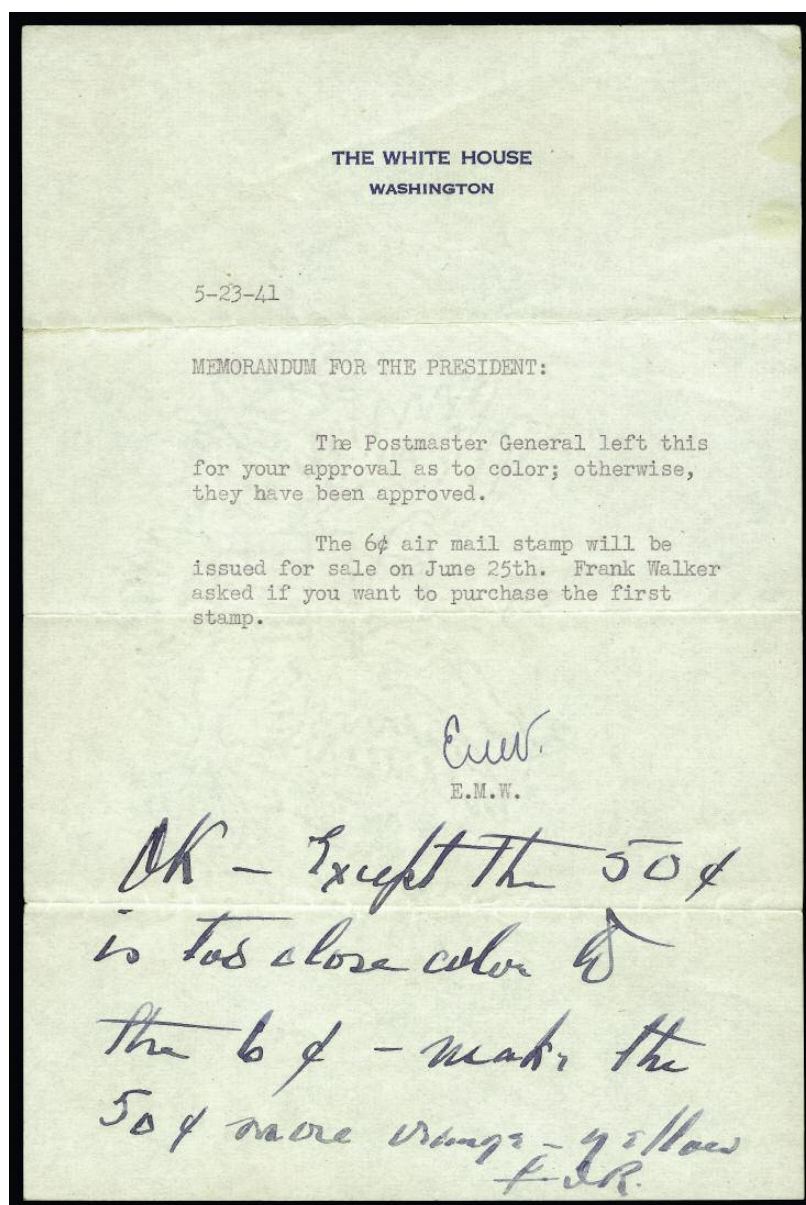 THE WHITE HOUSE
WASHINGTON
5-23-41
MEMORANDUM FOR THE PRESIDENT:
The Postmaster General left this
for your approval as to color; otherwise,
they have been approved.
The 6¢ air mail stamp will be
issued for sale on June 25th. Frank Walker
asked if you want to purchase the first
stamp.
EMW.
E.M.W.
OK – Except the 50¢
is too close color to
the 6¢ – make the
50¢ more orange-yellow
FDR.